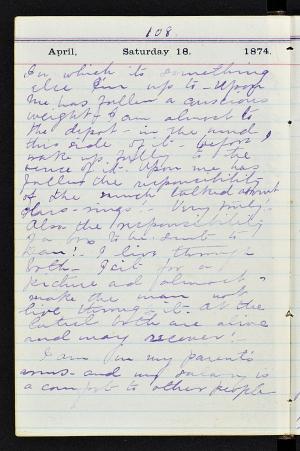 108
April, Saturday 18. 1874.
In which it's something
else I'm up to - Upon
me has fallen a conscious
weight - I am almost to
the depot - in the mud
this side of it - before I
wake up fully to the
sence of it. Upon me has
fallen the responsibility
of the much talked about
glass-rings! - Very finely!
Also the responsibility
to be sent to
! - I live through
both - for a
picture and almost
make the man not
live through it. At the
latest both are alive
and may recover!
I am in my parent's
arms - and my
a comfort to other people